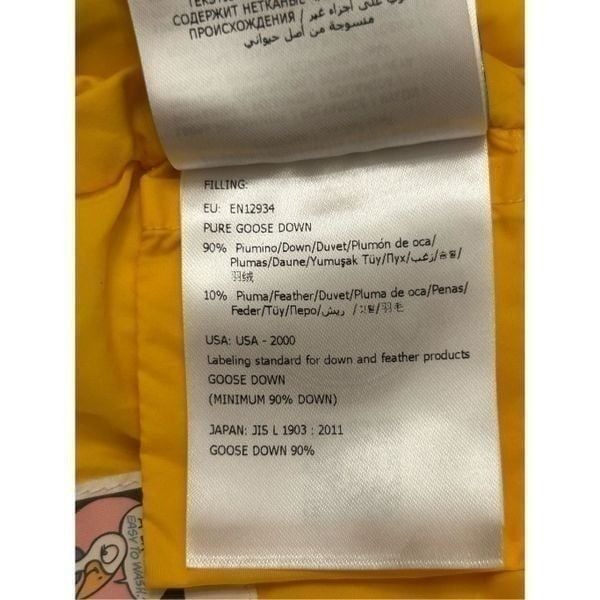 СОДЕРЖИТ НЕТКАНЫЕ
ПРОИСХОЖДЕНИЯ / على أجزاء غير
منسوجة من أصل حيواني
FILLING:
EU: EN12934
PURE GOOSE DOWN
90% Piumino/Down/Duvet/Plumón de oca/
Plumas/Daune/Yumuşak Tüy/Пух/زغب/솜털/
羽绒
10% Piuma/Feather/Duvet/Pluma de oca/Penas/
Feder/Tüy/Перо/ريش /깃털/羽毛
USA: USA - 2000
Labeling standard for down and feather products
GOOSE DOWN
(MINIMUM 90% DOWN)
JAPAN: JIS L 1903 : 2011
GOOSE DOWN 90%
EASY TO WASH!